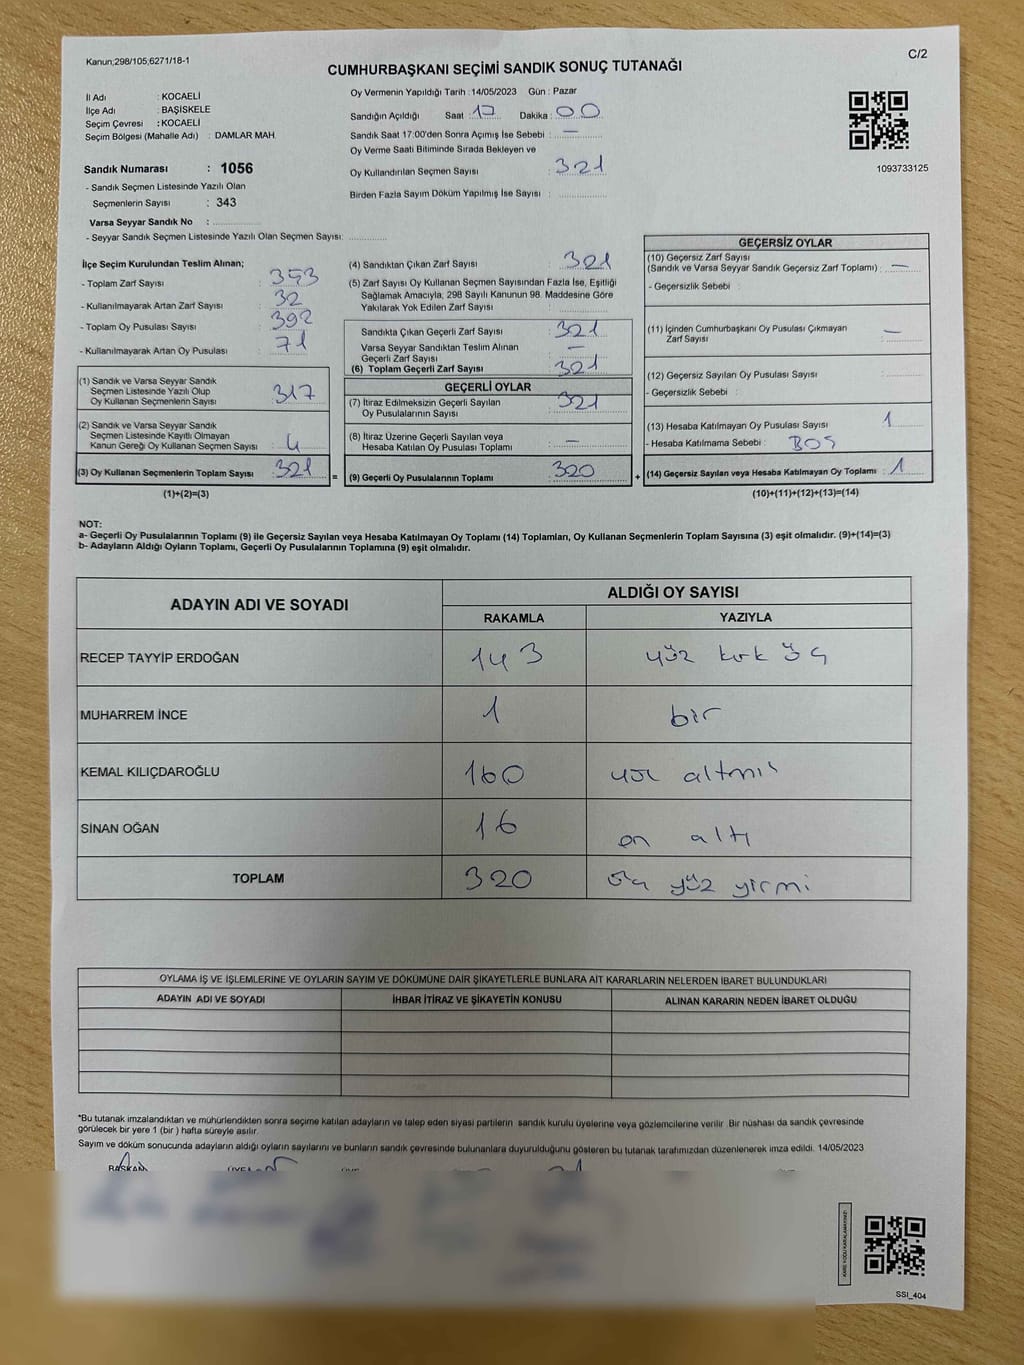 Kanun;298/105,6271/18-1
C/2
CUMHURBAŞKANI SEÇİMİ SANDIK SONUÇ TUTANAĞI
İl Adı : KOCAELİ
İlçe Adı : BAŞİSKELE
Seçim Çevresi : KOCAELİ
Seçim Bölgesi (Mahalle Adı) : DAMLAR MAH.
Sandık Numarası : 1056
- Sandık Seçmen Listesinde Yazılı Olan
Seçmenlerin Sayısı : 343
Varsa Seyyar Sandık No :
- Seyyar Sandık Seçmen Listesinde Yazılı Olan Seçmen Sayısı:
Oy Vermenin Yapıldığı Tarih :14/05/2023 Gün : Pazar
Sandığın Açıldığı Saat :17 Dakika : 00
Sandık Saat 17:00'den Sonra Açımış İse Sebebi : —
Oy Verme Saati Bitiminde Sırada Bekleyen ve
Oy Kullandırılan Seçmen Sayısı : 321
Birden Fazla Sayım Döküm Yapılmış İse Sayısı :
1093733125
İlçe Seçim Kurulundan Teslim Alınan;
- Toplam Zarf Sayısı : 353
- Kullanılmayarak Artan Zarf Sayısı : 32
- Toplam Oy Pusulası Sayısı : 392
- Kullanılmayarak Artan Oy Pusulası : 71
(1) Sandık ve Varsa Seyyar Sandık
Seçmen Listesinde Yazılı Olup
Oy Kullanan Seçmenlerin Sayısı : 317
(2) Sandık ve Varsa Seyyar Sandık
Seçmen Listesinde Kayıtlı Olmayan
Kanun Gereği Oy Kullanan Seçmen Sayısı : 4
(3) Oy Kullanan Seçmenlerin Toplam Sayısı : 321
(1)+(2)=(3)
=
(4) Sandıktan Çıkan Zarf Sayısı : 321
(5) Zarf Sayısı Oy Kullanan Seçmen Sayısından Fazla İse, Eşitliği
Sağlamak Amacıyla, 298 Sayılı Kanunun 98. Maddesine Göre
Yakılarak Yok Edilen Zarf Sayısı :
Sandıkta Çıkan Geçerli Zarf Sayısı : 321
Varsa Seyyar Sandıktan Teslim Alınan
Geçerli Zarf Sayısı : —
(6) Toplam Geçerli Zarf Sayısı : 321
GEÇERLİ OYLAR
(7) İtiraz Edilmeksizin Geçerli Sayılan
Oy Pusulalarının Sayısı : 321
(8) İtiraz Üzerine Geçerli Sayılan veya
Hesaba Katılan Oy Pusulası Toplamı : —
(9) Geçerli Oy Pusulalarının Toplamı : 320
+
GEÇERSİZ OYLAR
(10) Geçersiz Zarf Sayısı
(Sandık ve Varsa Seyyar Sandık Geçersiz Zarf Toplamı) : —
- Geçersizlik Sebebi :
(11) İçinden Cumhurbaşkanı Oy Pusulası Çıkmayan
Zarf Sayısı : —
(12) Geçersiz Sayılan Oy Pusulası Sayısı :
- Geçersizlik Sebebi :
(13) Hesaba Katılmayan Oy Pusulası Sayısı : 1
- Hesaba Katılmama Sebebi : BOŞ
(14) Geçersiz Sayılan veya Hesaba Katılmayan Oy Toplamı : 1
(10)+(11)+(12)+(13)=(14)
NOT:
a- Geçerli Oy Pusulalarının Toplamı (9) ile Geçersiz Sayılan veya Hesaba Katılmayan Oy Toplamı (14) Toplamları, Oy Kullanan Seçmenlerin Toplam Sayısına (3) eşit olmalıdır. (9)+(14)=(3)
b- Adayların Aldığı Oyların Toplamı, Geçerli Oy Pusulalarının Toplamına (9) eşit olmalıdır.
ADAYIN ADI VE SOYADI ALDIĞI OY SAYISI
RAKAMLA YAZIYLA
RECEP TAYYİP ERDOĞAN 143 yüz kırk üç
MUHARREM İNCE 1 bir
KEMAL KILIÇDAROĞLU 160 yüz altmış
SİNAN OĞAN 16 on altı
TOPLAM 320 üç yüz yirmi
OYLAMA İŞ VE İŞLEMLERİNE VE OYLARIN SAYIM VE DÖKÜMÜNE DAİR ŞİKAYETLERLE BUNLARA AİT KARARLARIN NELERDEN İBARET BULUNDUKLARI
ADAYIN ADI VE SOYADI İHBAR İTİRAZ VE ŞİKAYETİN KONUSU ALINAN KARARIN NEDEN İBARET OLDUĞU
*Bu tutanak imzalandıktan ve mühürlendikten sonra seçime katılan adayların ve talep eden siyasi partilerin sandık kurulu üyelerine veya gözlemcilerine verilir. Bir nüshası da sandık çevresinde
görülecek bir yere 1 (bir ) hafta süreyle asılır.
Sayım ve döküm sonucunda adayların aldığı oyların sayılarını ve bunların sandık çevresinde bulunanlara duyurulduğunu gösteren bu tutanak tarafımızdan düzenlenerek imza edildi. 14/05/2023
BAŞKAN
SSI_404